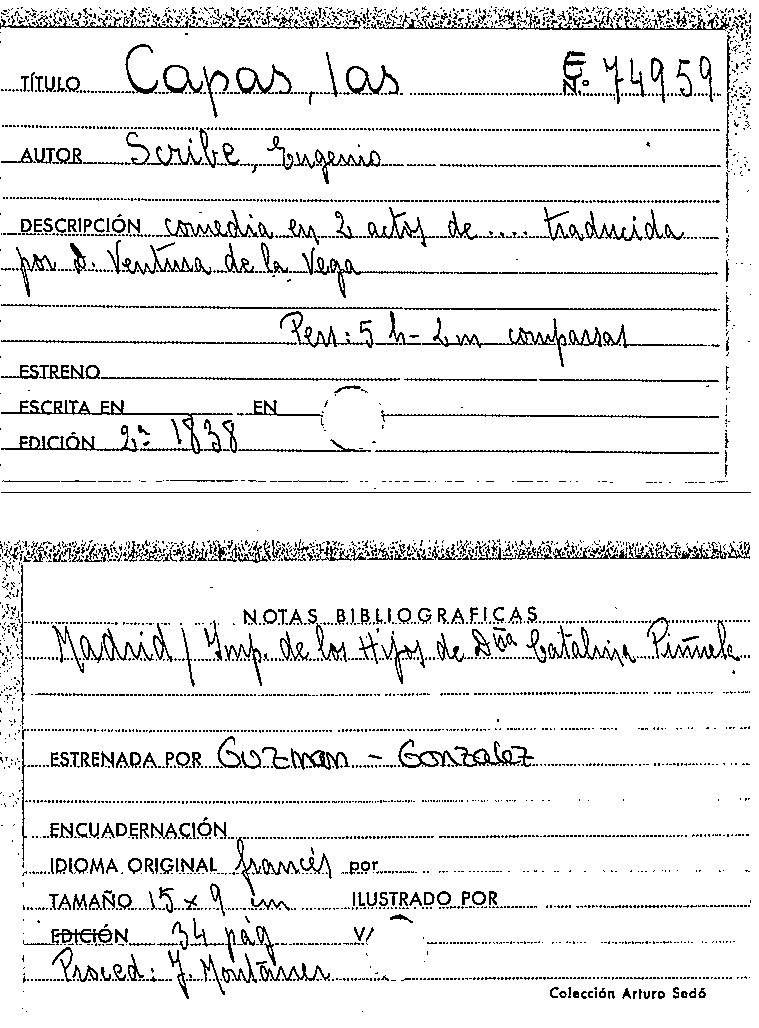 TÍTULO Capas, las
N.º 74959
AUTOR Scribe, Eugenio
DESCRIPCIÓN comedia en 2 actos de .... traducida
por D. Ventura de la Vega
Pers: 5 h - 2 m comparsas
ESTRENO
ESCRITA EN EN
EDICIÓN 2ª 1838
NOTAS BIBLIOGRAFICAS
Madrid / Imp. de los Hijos de Dña Catalina Piñuela
ESTRENADA POR Guzman - Gonzalez
ENCUADERNACIÓN
IDIOMA ORIGINAL francés por
TAMAÑO 15 x 9 cm ILUSTRADO POR
EDICIÓN 34 pág V/
Proced: J. Montaner
Colección Arturo Sedó